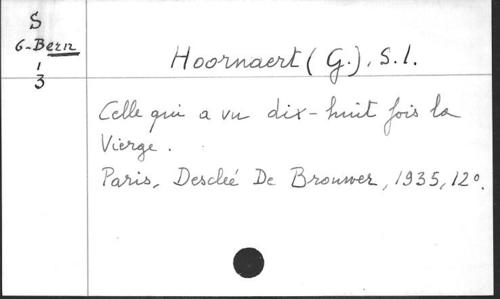 S
6-Bern
1
3
Hoornaert (G.), S.I.
Celle qui a vu dix-huit fois la
Vierge.
Paris, Desclée De Brouwer, 1935, 12°.